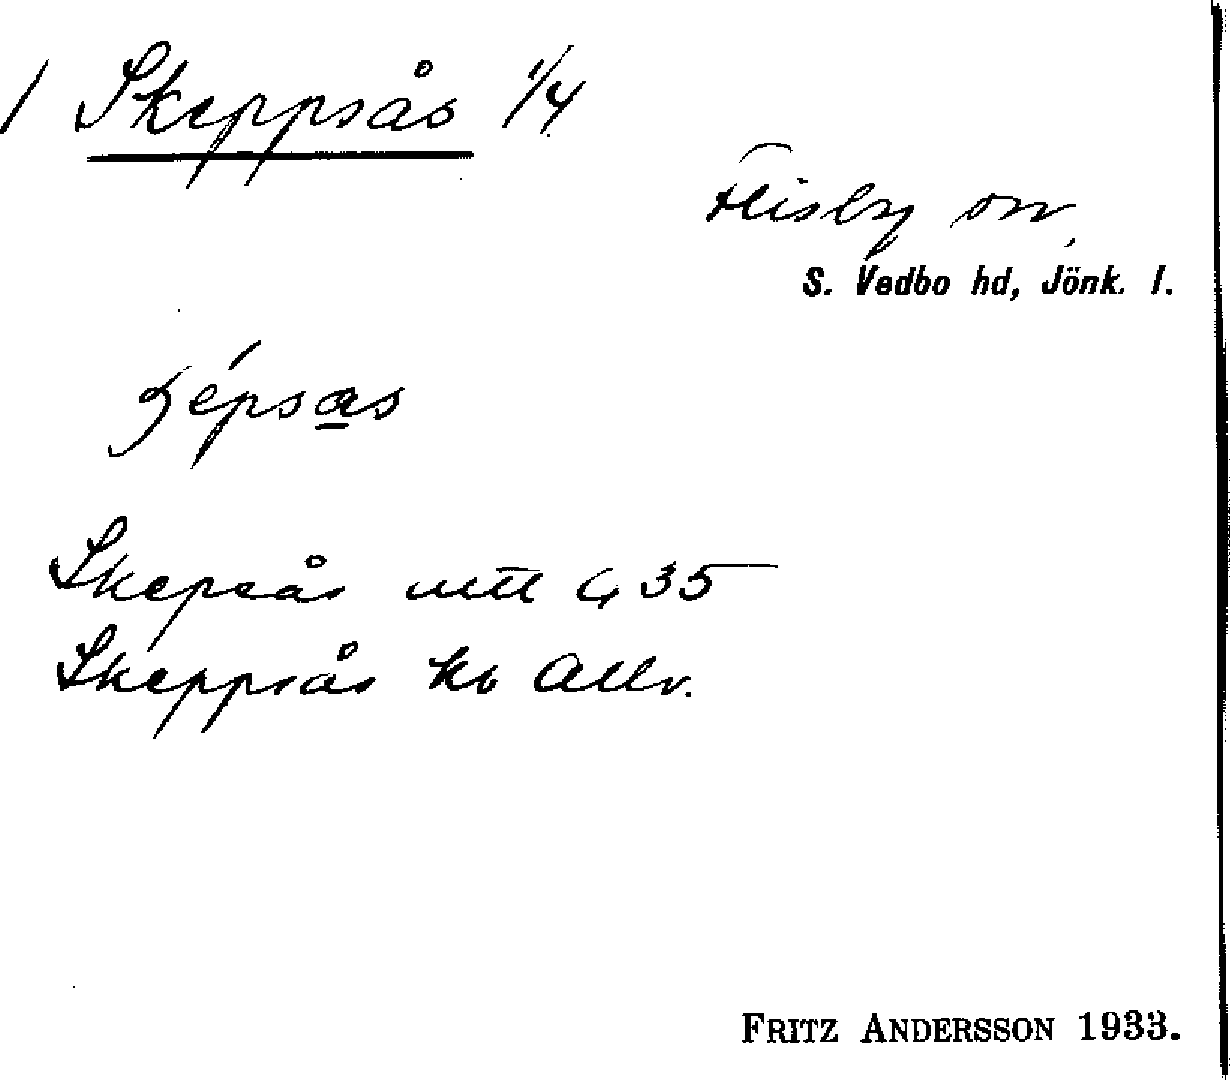 1 Skeppsås 1/4
Flisby sn
S. Vedbo hd, Jönk. l.
Skepsås 35
Skeppsås kb Allv.
FRITZ ANDERSSON 1933.